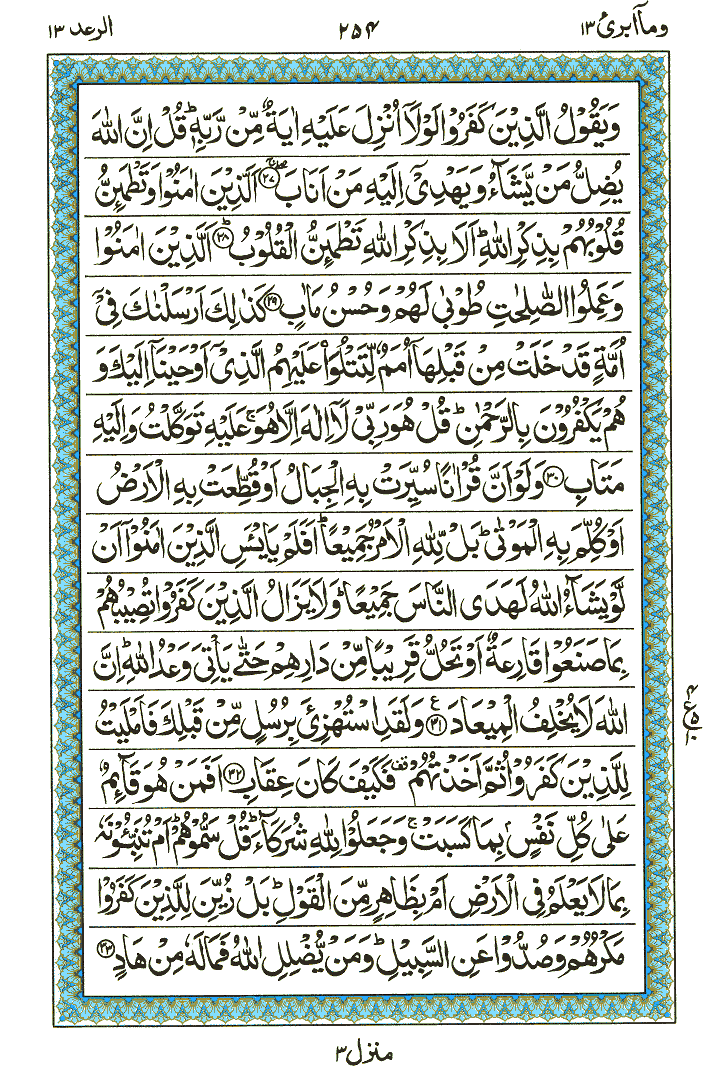 وماۤابرئ ١٣
٢٥٤
الرعد ١٣
وَيَقُوْلُ الَّذِيْنَ كَفَرُوْا لَوْلَاۤ اُنْزِلَ عَلَيْهِ اٰيَةٌ مِّنْ رَّبِّهٖ ؕ قُلْ اِنَّ اللّٰهَ
يُضِلُّ مَنْ يَّشَآءُ وَيَهْدِىْۤ اِلَيْهِ مَنْ اَنَابَ ۖۚ ﴿٢٧﴾ اَلَّذِيْنَ اٰمَنُوْا وَتَطْمَىِٕنُّ
قُلُوْبُهُمْ بِذِكْرِ اللّٰهِ ؕ اَلَا بِذِكْرِ اللّٰهِ تَطْمَىِٕنُّ الْقُلُوْبُ ؕ ﴿٢٨﴾ اَلَّذِيْنَ اٰمَنُوْا
وَعَمِلُوا الصّٰلِحٰتِ طُوْبٰى لَهُمْ وَحُسْنُ مَاٰبٍ ﴿٢٩﴾ كَذٰلِكَ اَرْسَلْنٰكَ فِىْۤ
اُمَّةٍ قَدْ خَلَتْ مِنْ قَبْلِهَاۤ اُمَمٌ لِّتَتْلُوَا۟ عَلَيْهِمُ الَّذِىْۤ اَوْحَيْنَاۤ اِلَيْكَ وَ
هُمْ يَكْفُرُوْنَ بِالرَّحْمٰنِ ؕ قُلْ هُوَ رَبِّىْ لَاۤ اِلٰهَ اِلَّا هُوَ ۚ عَلَيْهِ تَوَكَّلْتُ وَاِلَيْهِ
مَتَابِ ﴿٣٠﴾ وَلَوْ اَنَّ قُرْاٰنًا سُيِّرَتْ بِهِ الْجِبَالُ اَوْ قُطِّعَتْ بِهِ الْاَرْضُ
اَوْ كُلِّمَ بِهِ الْمَوْتٰى ؕ بَلْ لِّلّٰهِ الْاَمْرُ جَمِيْعًا ؕ اَفَلَمْ يَا۟يْـَٔسِ الَّذِيْنَ اٰمَنُوْۤا اَنْ
لَّوْ يَشَآءُ اللّٰهُ لَهَدَى النَّاسَ جَمِيْعًا ؕ وَلَا يَزَالُ الَّذِيْنَ كَفَرُوْا تُصِيْبُهُمْ
بِمَا صَنَعُوْا قَارِعَةٌ اَوْ تَحُلُّ قَرِيْبًا مِّنْ دَارِهِمْ حَتّٰى يَاْتِىَ وَعْدُ اللّٰهِ ؕ اِنَّ
اللّٰهَ لَا يُخْلِفُ الْمِيْعَادَ ﴿٣١﴾ ع وَلَقَدِ اسْتُهْزِئَ بِرُسُلٍ مِّنْ قَبْلِكَ فَاَمْلَيْتُ
لِلَّذِيْنَ كَفَرُوْا ثُمَّ اَخَذْتُهُمْ فَكَيْفَ كَانَ عِقَابِ ﴿٣٢﴾ اَفَمَنْ هُوَ قَآىِٕمٌ
عَلٰى كُلِّ نَفْسٍۭ بِمَا كَسَبَتْ ۚ وَجَعَلُوْا لِلّٰهِ شُرَكَآءَ ؕ قُلْ سَمُّوْهُمْ ؕ اَمْ تُنَبِّـُٔوْنَهٗ
بِمَا لَا يَعْلَمُ فِى الْاَرْضِ اَمْ بِظَاهِرٍ مِّنَ الْقَوْلِ ؕ بَلْ زُيِّنَ لِلَّذِيْنَ كَفَرُوْا
مَكْرُهُمْ وَصُدُّوْا عَنِ السَّبِيْلِ ؕ وَمَنْ يُّضْلِلِ اللّٰهُ فَمَا لَهٗ مِنْ هَادٍ ﴿٣٣﴾
منزل ٣